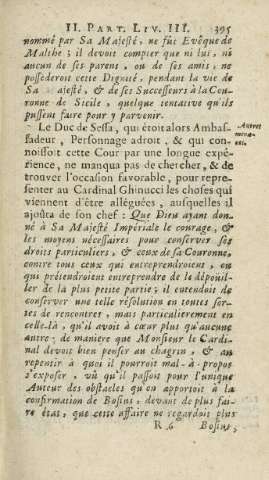 II. PART. LIV. III. 395
nommé par Sa Majesté, ne fût Evêque de
Malthe ; il devoit compter que ni lui, ni
aucun de ses parens, ou de ses amis, ne
possederoit cette Dignité, pendant la vie de
Sa ajesté, & de ses Successeurs à la Cou-
ronne de Sicile, quelque tentative qu'ils
pussent faire pour y parvenir.
Le Duc de Sessa, qui étoit alors Ambas-
sadeur, Personnage adroit, & qui con-
noissoit cette Cour par une longue expé-
rience, ne manqua pas de chercher, & de
trouver l'occasion favorable, pour repre-
senter au Cardinal Ghinucci les choses qui
viennent d'être alléguées, ausquelles il
ajoûta de son chef : Que Dieu ayant don-
né à Sa Majesté Impériale le courage, &
les moyens nécessaires pour conserver ses
droits particuliers, & ceux de sa Couronne,
contre tous ceux qui entreprendroient, ou
qui prétendroient entreprendre de le dépouil-
ler de la plus petite partie ; il entendoit de
conserver une telle résolution en toutes sor-
tes de rencontres, mais particulierement en
celle-là, qu'il avoit à cœur plus qu'aucune
autre ; de maniere que Monsieur le Cardi-
nal devoit bien penser au chagrin, & au
repentir à quoi il pourroit mal-à-propos
s'exposer, vû qu'il passoit pour l'unique
Auteur des obstacles qu'on apportoit à la
confirmation de Bosius, devant de plus fai-
re état, que cette affaire ne regardoit plus
R 6 Bosius ;